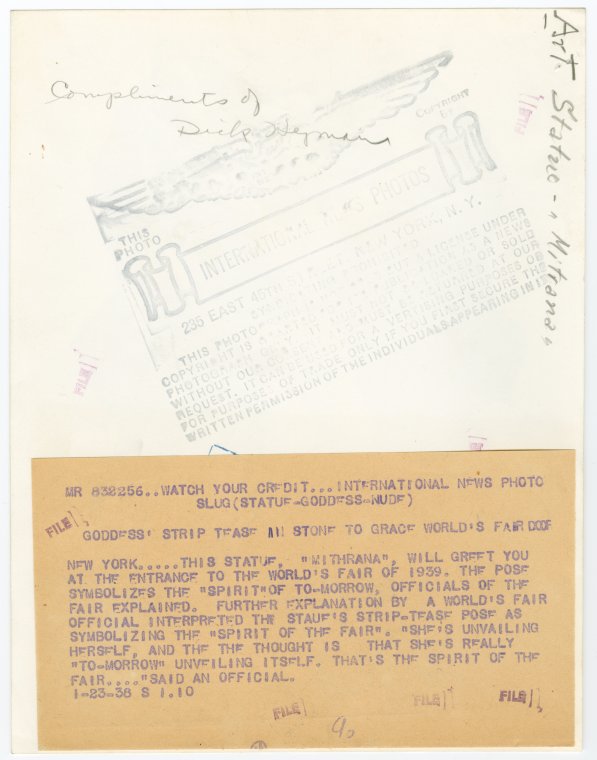 Art. Statue - "Mitrana"
Compliments of
Dick Heyman
COPYRIGHT
BY
THIS
PHOTO
INTERNATIONAL NEWS PHOTOS
235 EAST 45TH STREET, NEW YORK, N.Y.
THIS PHOTO
COPYRIGHT IS A NEWS
PHOTOGRAPH ONLY. IT MUST OR SOLD
WITHOUT OUR CONSENT AND MUST BE RETURNED AT OUR
REQUEST. IT CAN BE USED FOR ADVERTISING PURPOSES OR
FOR PURPOSES OF TRADE ONLY IF YOU FIRST SECURE THE
WRITTEN PERMISSION OF THE INDIVIDUALS APPEARING IN IT.
FILE
FILE
MR 838256..WATCH YOUR CREDIT...INTERNATIONAL NEWS PHOTO
SLUG(STATUE-GODDESS-NUDE)
FILE
GODDESS' STRIP TEASE IN STONE TO GRACE WORLD'S FAIR DOOR
NEW YORK.....THIS STATUE, "MITHRANA", WILL GREET YOU
AT THE ENTRANCE TO THE WORLD'S FAIR OF 1939. THE POSE
SYMBOLIZES THE "SPIRIT"OF TO-MORROW, OFFICIALS OF THE
FAIR EXPLAINED. FURTHER EXPLANATION BY A WORLD'S FAIR
OFFICIAL INTERPRETED THE STAUE'S STRIP-TEASE POSE AS
SYMBOLIZING THE "SPIRIT OF THE FAIR". "SHE'S UNVAILING
HERSELF, AND THE THE THOUGHT IS THAT SHE'S REALLY
"TO-MORROW" UNVEILING ITSELF. THAT'S THE SPIRIT OF THE
FAIR...."SAID AN OFFICIAL.
1-23-38 S 1.10
FILE
FILE
FILE